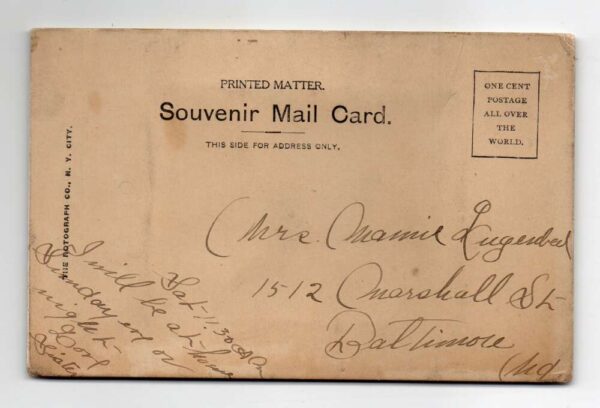 PRINTED MATTER.
Souvenir Mail Card.
THIS SIDE FOR ADDRESS ONLY.
ONE CENT
POSTAGE
ALL OVER
THE
WORLD.
THE ROTOGRAPH CO., N. Y. CITY.
Mrs. Mamie Lugenbeel
1512 Marshall St
Baltimore
Md.
Sat. 11.30 AM
I will be at home
Sunday eve or
night
Your
Sister